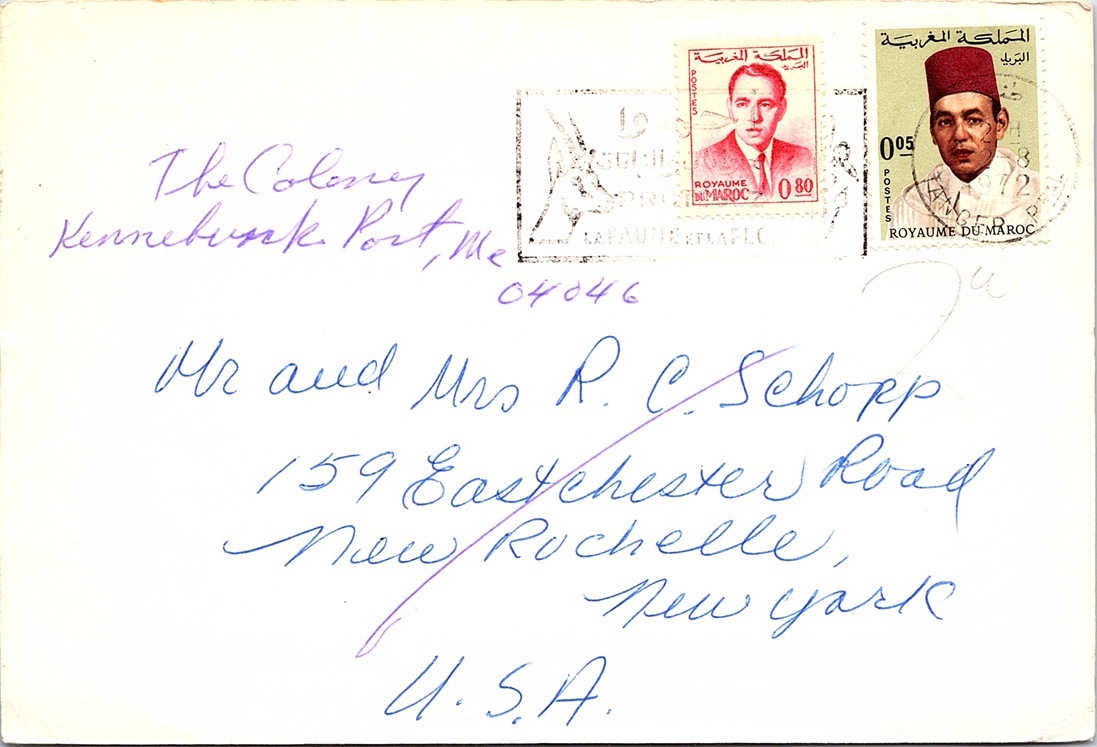 المملكة المغربية
البريد
POSTES
ROYAUME
DU MAROC
0 80
المملكة المغربية
البريد
0 05
POSTES
ROYAUME DU MAROC
1972
TANGER
LA FAUNE ET LA FLO
The Colony
Kennebunk Port, Me
04046
Mr and Mrs R. C. Schopp
159 Eastchester Road
New Rochelle,
New York
U.S.A.